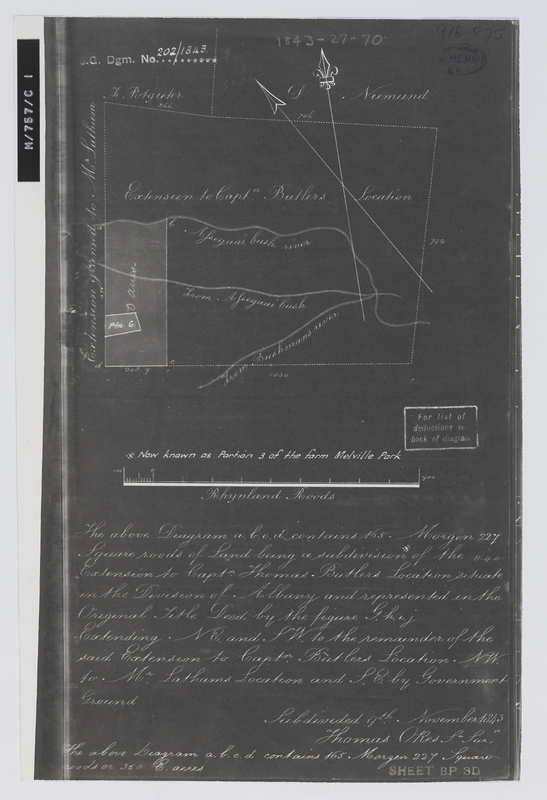 1843-27-70
916-875
S.G. Dgm. No. 202/1843
M/757/C 1
D Niemand
Extension to Captn Butlers Location
Extension granted to Mr Latham
Assegaai bush river
From Assegaai bush
From Bushmans river
Ptn. 6
1000
For list of
deductions see
back of diagram
※ Now known as Portion 3 of the farm Melville Park
Rhynland Roods
The above Diagram a.b.c.d. contains 165. Morgen 227
Square roods of Land being a subdivision※ of the
Extension to Captn Thomas Butlers Location situate
in the Division of Albany and represented in the
Original Title Deed by the figure G.h.i.j
Extending N.E. and S.W. to the remainder of the
said Extension to Captn Butlers Location N.W.
to Mr Lathams Location and S.E. by Government
Ground
Subdivided 9th November 1843
Thomas O'Kes Sn Surr
The above Diagram a.b.c.d. contains 165 Morgen 227 Square
roods or 350 E. acres
SHEET BP 3D